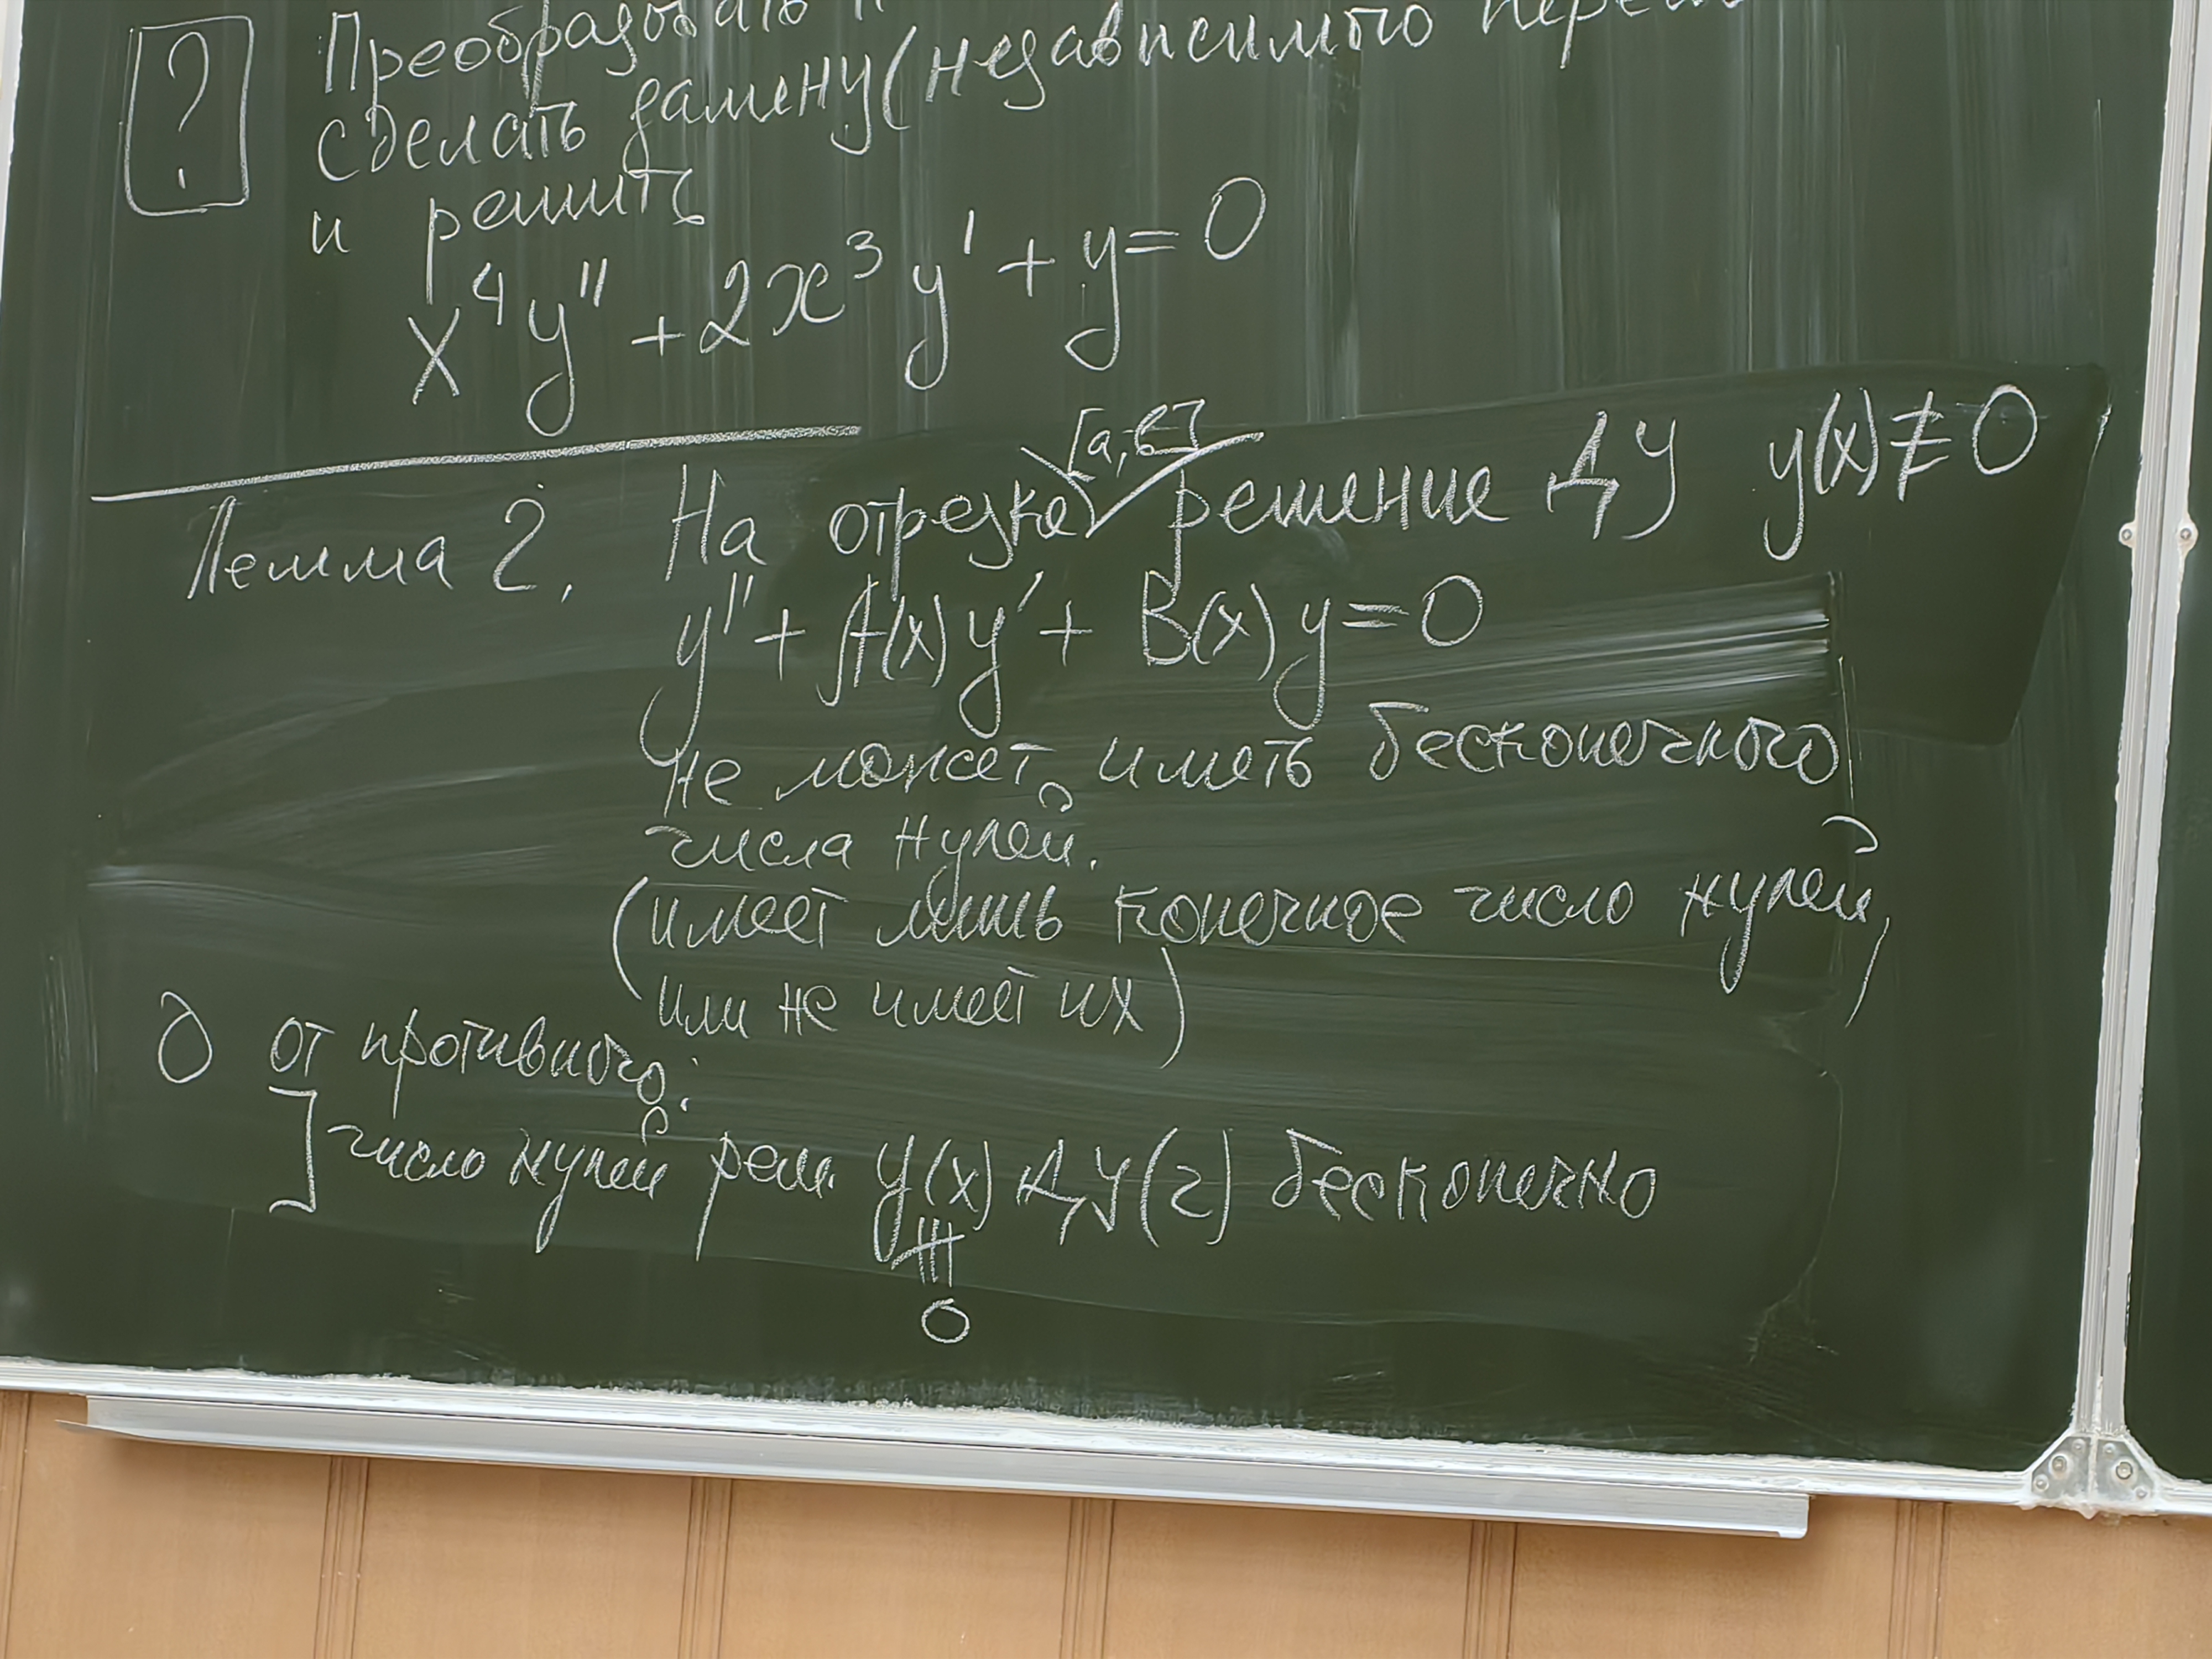 ?
Преобразовать
сделать замену (независимого
и решить
x⁴y" + 2x³y' + y = 0
Лемма 2. На отрезке [a,в] решение ДУ y(x) ≢ 0
y" + A(x)y' + B(x)y = 0
не может иметь бесконечного
числа нулей.
(имеет лишь конечное число нулей,
или не имеет их)
от противного:
] число нулей реш. y(x) ДУ(2) бесконечно
≢
0